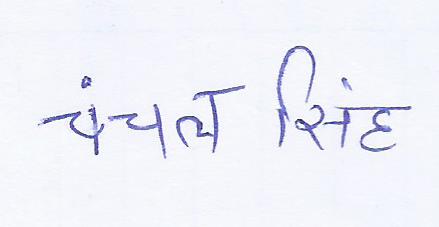 चंचल सिंह